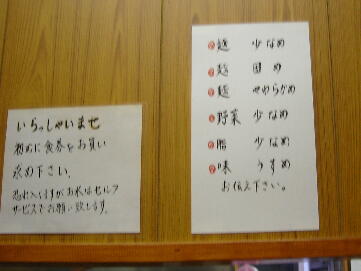 いらっしゃいませ
初めに食券をお買い
求め下さい。
恐れ入りますがお水はセルフ
サービスでお願い致します。
麺 少なめ
麺 固め
麺 やわらかめ
野菜 少なめ
脂 少なめ
味 うすめ
お伝え下さい。